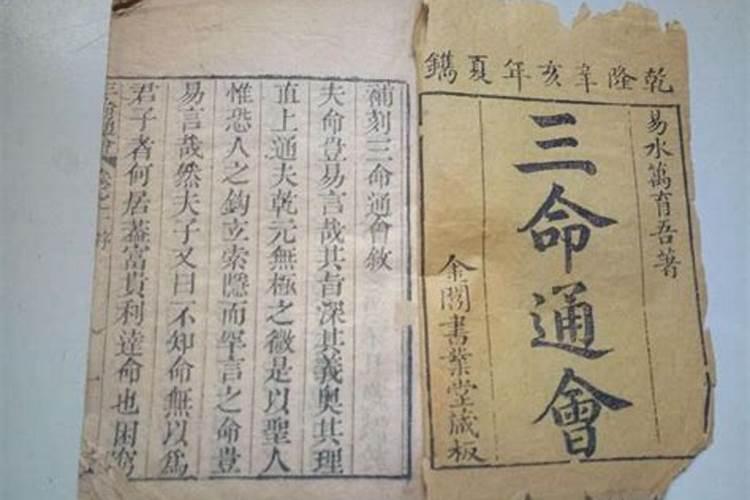 乾隆辛亥年夏鐫
易水萬育吾著
三命通會
金閶書業堂藏板
補刻三命通會敘
夫命豈易言哉其旨深其義奧其理
直上通夫乾元無極之微是以聖人
惟恐人之鉤玄索隱而罕言之命豈
易言哉然夫子又曰不知命無以爲
君子者何居葢富貴利達命也困窮
三命通會
序